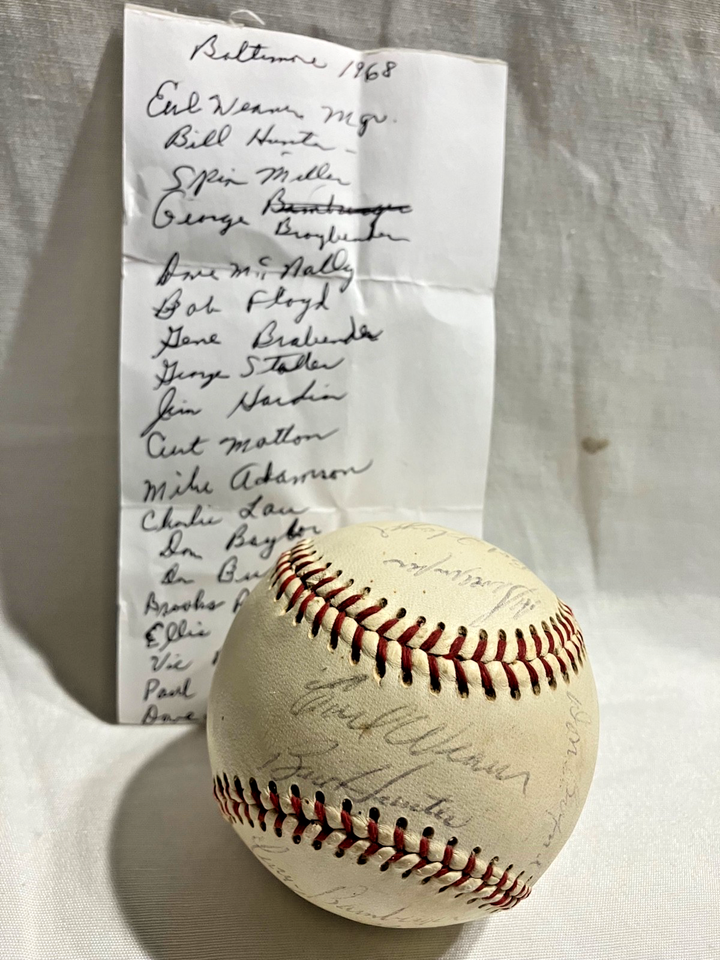 Baltimore 1968
Earl Weaver Mgr.
Bill Hunter
Spin Miller
George Bamburger
Braybender
Dave McNally
Bob Floyd
Gene Brabender
George Staller
Jim Hardin
Curt Motton
Mike Adamson
Charlie Lau
Don Baylor
Don Bu
Brooks
Ellie
Vic
Paul
Dave
Earl Weaver
Bill Hunter